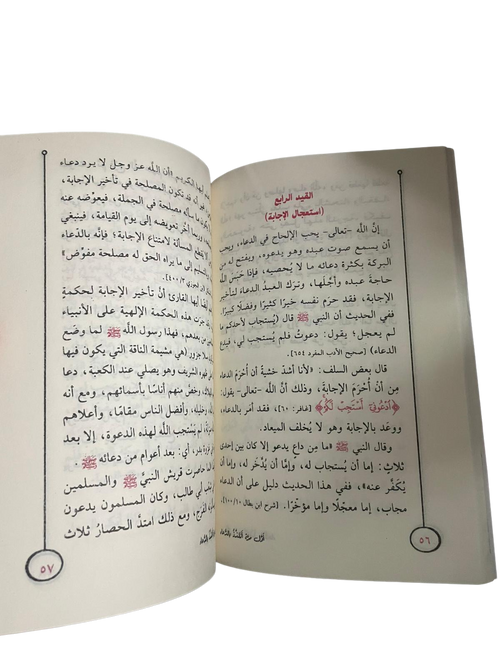 القيد الرابع
(استعجال الإجابة)
إنَّ الله -تعالى- يحب الإلحاح في الدعاء، ويحب
أن يسمع صوت عبده وهو يدعوه، ويفتح له من
البركة بكثرة دعائه ما لا يُحصيه، فإذا حَبَسَ الله
حاجةَ عبده وأجَّلها، وتركَ العبدُ الدعاءَ لتأخير
الإجابة، فقد حرَم نفسه خيرًا كثيرًا وفضلًا كبيرًا،
ففي الحديث أن النبي ﷺ قال (يُستجاب لأحدكم ما
لم يعجل؛ يقول: دعوتُ فلم يُستجب لي، فيدع
الدعاء) (صحيح الأدب المفرد ٦٥٤)
قال بعض السلف: «لأنا أشدّ خشيةً أن أُحرَمَ الدعاءَ
مِن أنْ أُحرَمَ الإجابة»، وذلك أنَّ الله -تعالى- يقول:
﴿ادْعُونِي أَسْتَجِبْ لَكُمْ﴾ [غافر: ٦٠]، فقد أمر بالدعاء،
ووعَد بالإجابة وهو لا يُخلف الميعاد.
وقال النبي ﷺ «ما مِن داعٍ يدعو إلا كان بين إحدى
ثلاث: إما أن يُستجاب له، وإمَّا أن يُدَّخر له، وإما أن
يُكفَّر عنه»، ففي هذا الحديث دليل على أن الدعاء
مجاب، إما معجلًا وإما مؤخَّرًا. (شرح ابن بطال ١٠٠/١٠)
٥٦
الكريم «أن الله عز وجل لا يرد دعاء
قد تكون المصلحة في تأخير الإجابة،
سأله مصلحة في الجملة، فيعوِّضه عنه
أخر تعويضه إلى يوم القيامة، فينبغي
يقطع المسألة لامتناع الإجابة؛ فإنَّه بالدُّعاء
إلى ما يراه الحق له مصلحة مفوِّض»
أيها القارئ أنَّ تأخير الإجابة لحكمةٍ
هذه الحكمة الإلهية على الأنبياء
بعدهم، فهذا رسول الله ﷺ لما وضع
جزور (هي مشيمة الناقة التي يكون فيها
الشريف وهو يصلي عند الكعبة، دعا
وخصَّ منهم أناسًا بأسمائهم، ومع أنه
وخليله، وأفضل الناس مقامًا، وأعلاهم
لم يَستجِب الله لهذه الدعوة، إلا بعد
بدر، أي: بعد أعوام من دعائه ﷺ.
حاصرت قريش النبيَّ ﷺ والمسلمين
أبي طالب، وكان المسلمون يدعون
الفرج، ومع ذلك امتدَّ الحصارُ ثلاث
٥٧